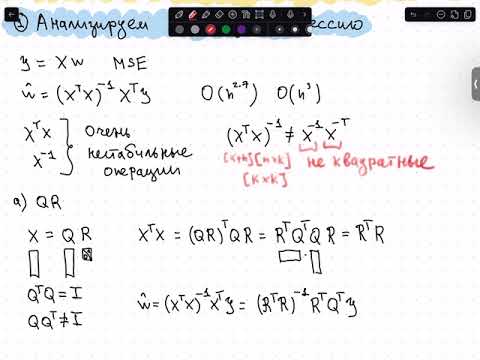 ① Анализируем ессию
y = Xw MSE
ŵ = (XᵀX)⁻¹ Xᵀy O(n²·⁷) O(n³)
XᵀX
X⁻¹
} Очень
нестабильные
операции
(XᵀX)⁻¹ ≠ X⁻¹ X⁻ᵀ
[k×n][n×k] не квадратные
[k×k]
а) QR
X = QR XᵀX = (QR)ᵀQR = RᵀQᵀQR = RᵀR
QᵀQ = I
QQᵀ ≠ I
ŵ = (XᵀX)⁻¹Xᵀy = (RᵀR)⁻¹RᵀQᵀy